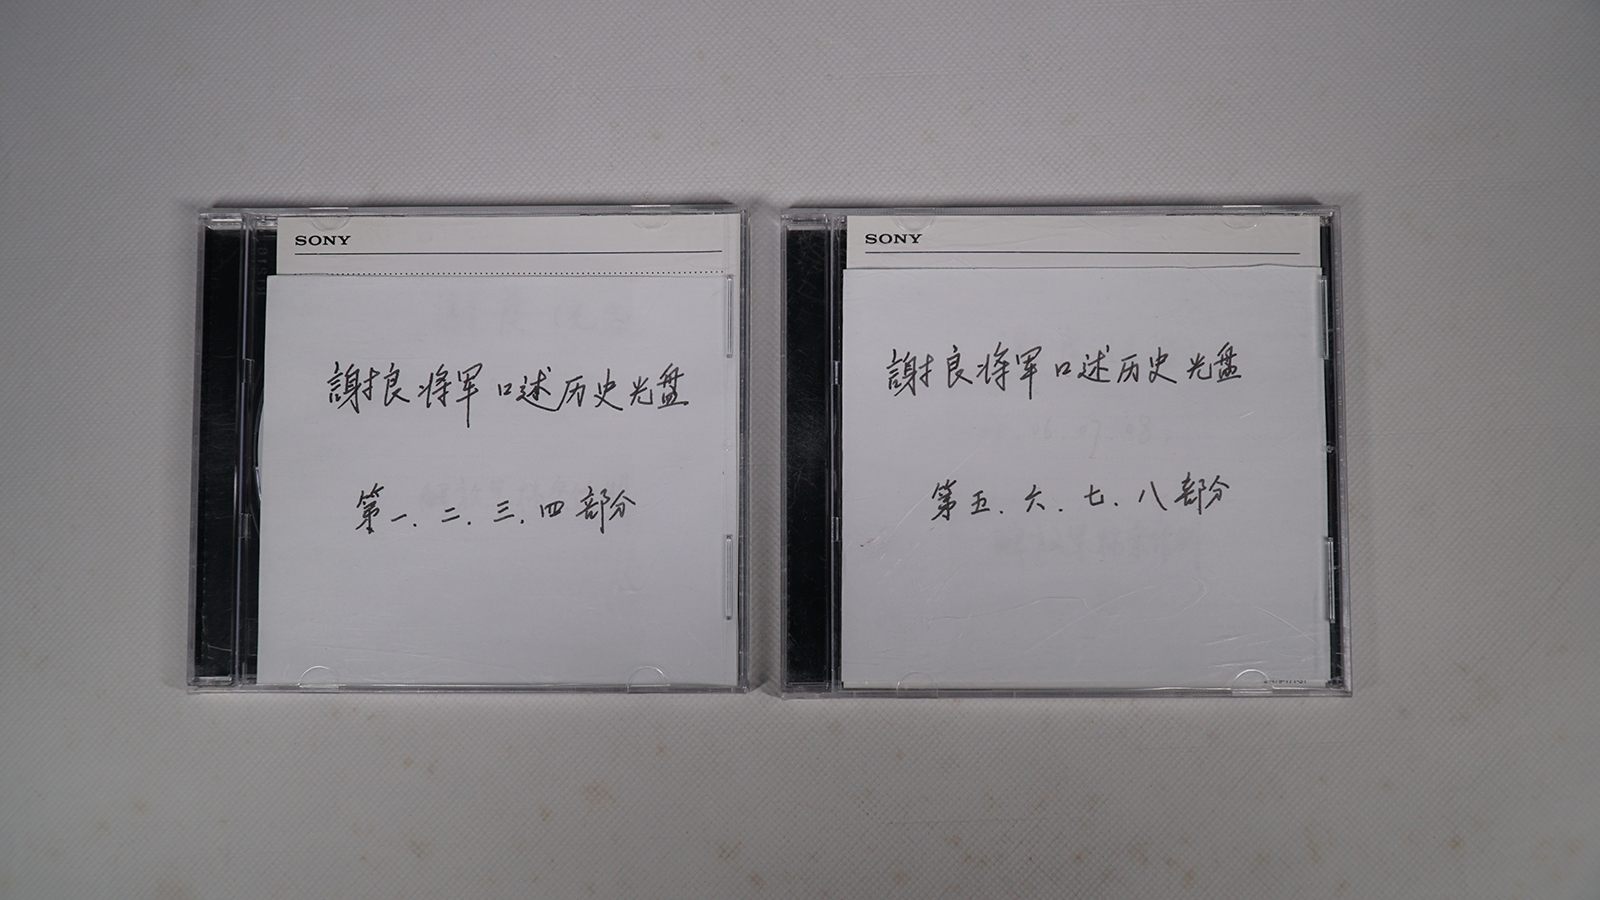 SONY
謝良将军口述历史光盘
第一、二、三、四部分
SONY
謝良将军口述历史光盘
第五、六、七、八部分